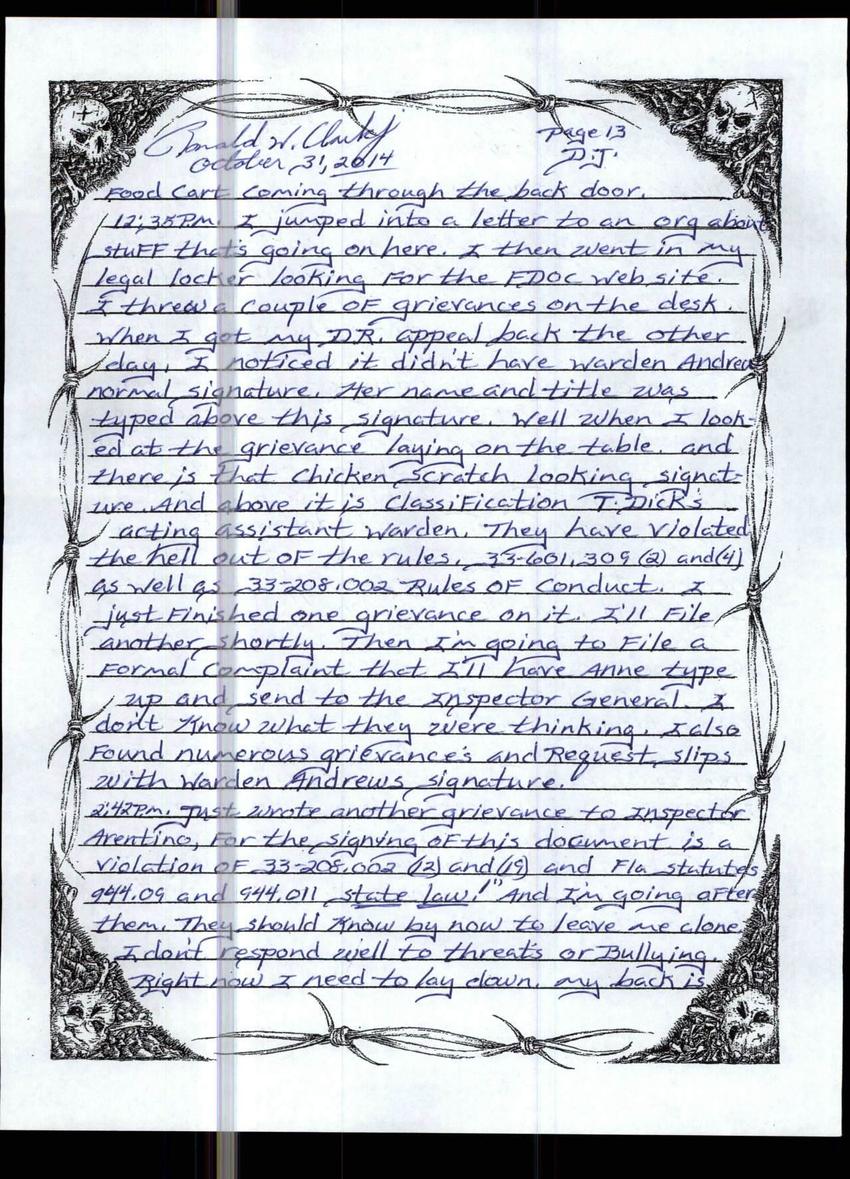 Ronald W. Clark Jr
October, 31, 2014
Page 13
D.J.
Food Cart coming through the back door.
12:35PM. I jumped into a letter to an org about
stuff that's going on here. I then went in my
legal locker looking For the FDOC web site.
I threw a couple OF grievances on the desk.
When I got my D.R. appeal back the other
day, I noticed it didn't have Warden Andrew
normal signature. Her name and title was
typed above this signature. Well when I look-
ed at the grievance laying on the table. and
there is that chicken scratch looking signat-
ure. And above it is Classification T. Dick's
acting assistant warden. They have violated
the hell out OF the rules. 33-601.309 (2) and (4)
as well as 33-208.002 Rules OF Conduct. I
just Finished one grievance on it. I'll File
another shortly. Then I'm going to File a
Formal Complaint that I'll have Anne type
up and send to the Inspector General. I
don't Know what they were thinking. I also
Found numerous grievance's and Request slips
with Warden Andrews signature.
2:42PM. Just wrote another grievance to Inspector
Arentino, For the signing OF this document is a
violation OF 33-208.002 (12) and (19) and Fla statutes
944.09 and 944.011 state law!" And I'm going after
them. They should Know by now to leave me alone.
I don't respond well to threats or Bullying.
Right now I need to lay down. my back is